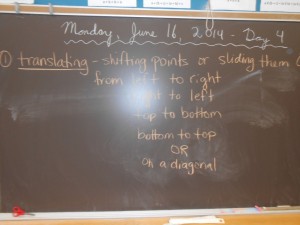 Monday, June 16, 2014 - Day 4
① translating - shifting points or sliding them
from left to right
right to left
top to bottom
bottom to top
OR
on a diagonal